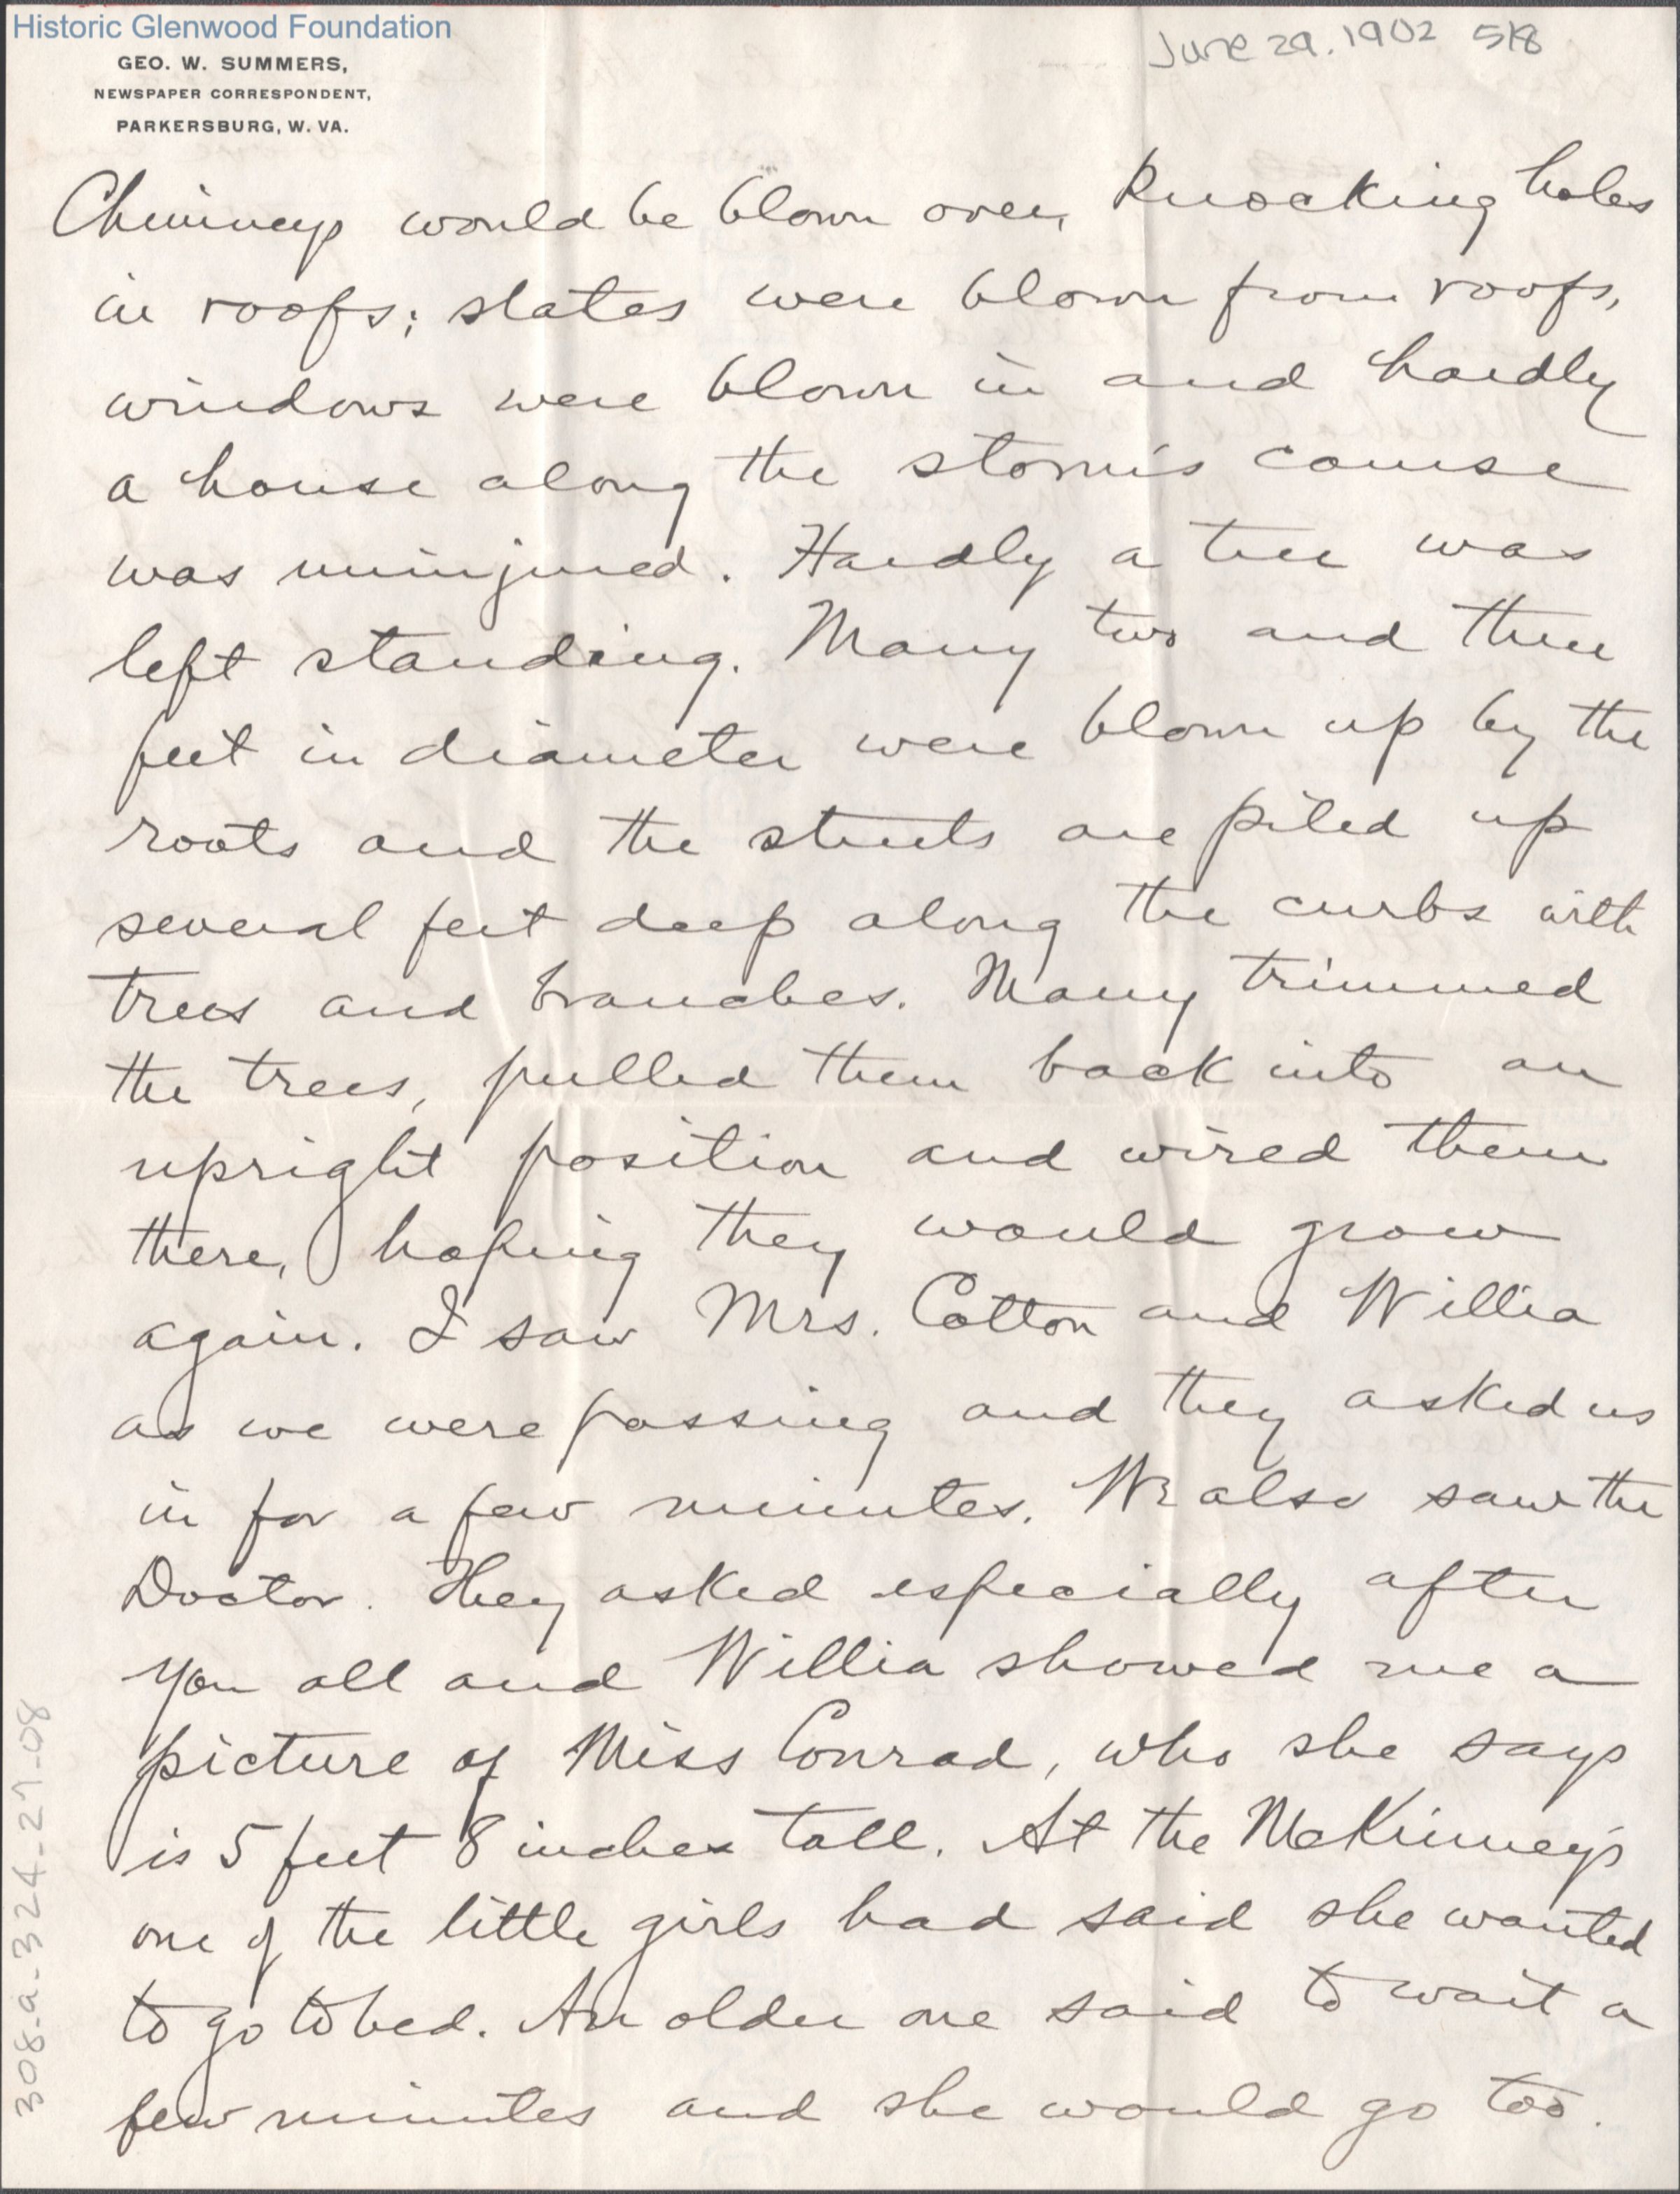 Historic Glenwood Foundation
June 29. 1902 5/8
GEO. W. SUMMERS,
NEWSPAPER CORRESPONDENT,
PARKERSBURG, W. VA.
Chimneys would be blown over, knocking holes
in roofs; slates were blown from roofs,
windows were blown in and hardly
a house along the storm's course
was uninjured. Hardly a tree was
left standing. Many two and three
feet in diameter were blown up by the
roots and the streets are piled up
several feet deep along the curbs with
trees and branches. Many trimmed
the trees, pulled them back into an
upright position and wired them
there, hoping they would grow
again. I saw Mrs. Cotton and Willia
as we were passing and they asked us
in for a few minutes. We also saw the
Doctor. They asked especially after
you all and Willia showed me a
picture of Miss Conrad, who she says
is 5 feet 8 inches tall. At the McKinney's
one of the little girls had said she wanted
to go to bed. An older one said to wait a
few minutes and she would go too.
308-a-324-27-08